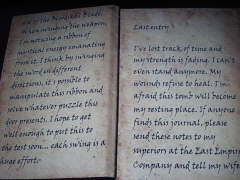 use of the Bloodskal Blade.
When swinging the weapon,
I'm noticing a ribbon of
mystical energy emanating
from it. I think by swinging
the sword different
directions, it's possible to
manipulate this ribbon and
solve whatever puzzle this
door presents. I hope to get
well enough to put this to
the test soon... each swing is a
huge effort.
Last entry
I've lost track of time and
my strength is fading. I can't
even stand anymore. My
wounds refuse to heal. I'm
afraid this tomb will become
my resting place. If anyone
finds this journal, please
send these notes to my
superiors at the East Empire
Company and tell my wife